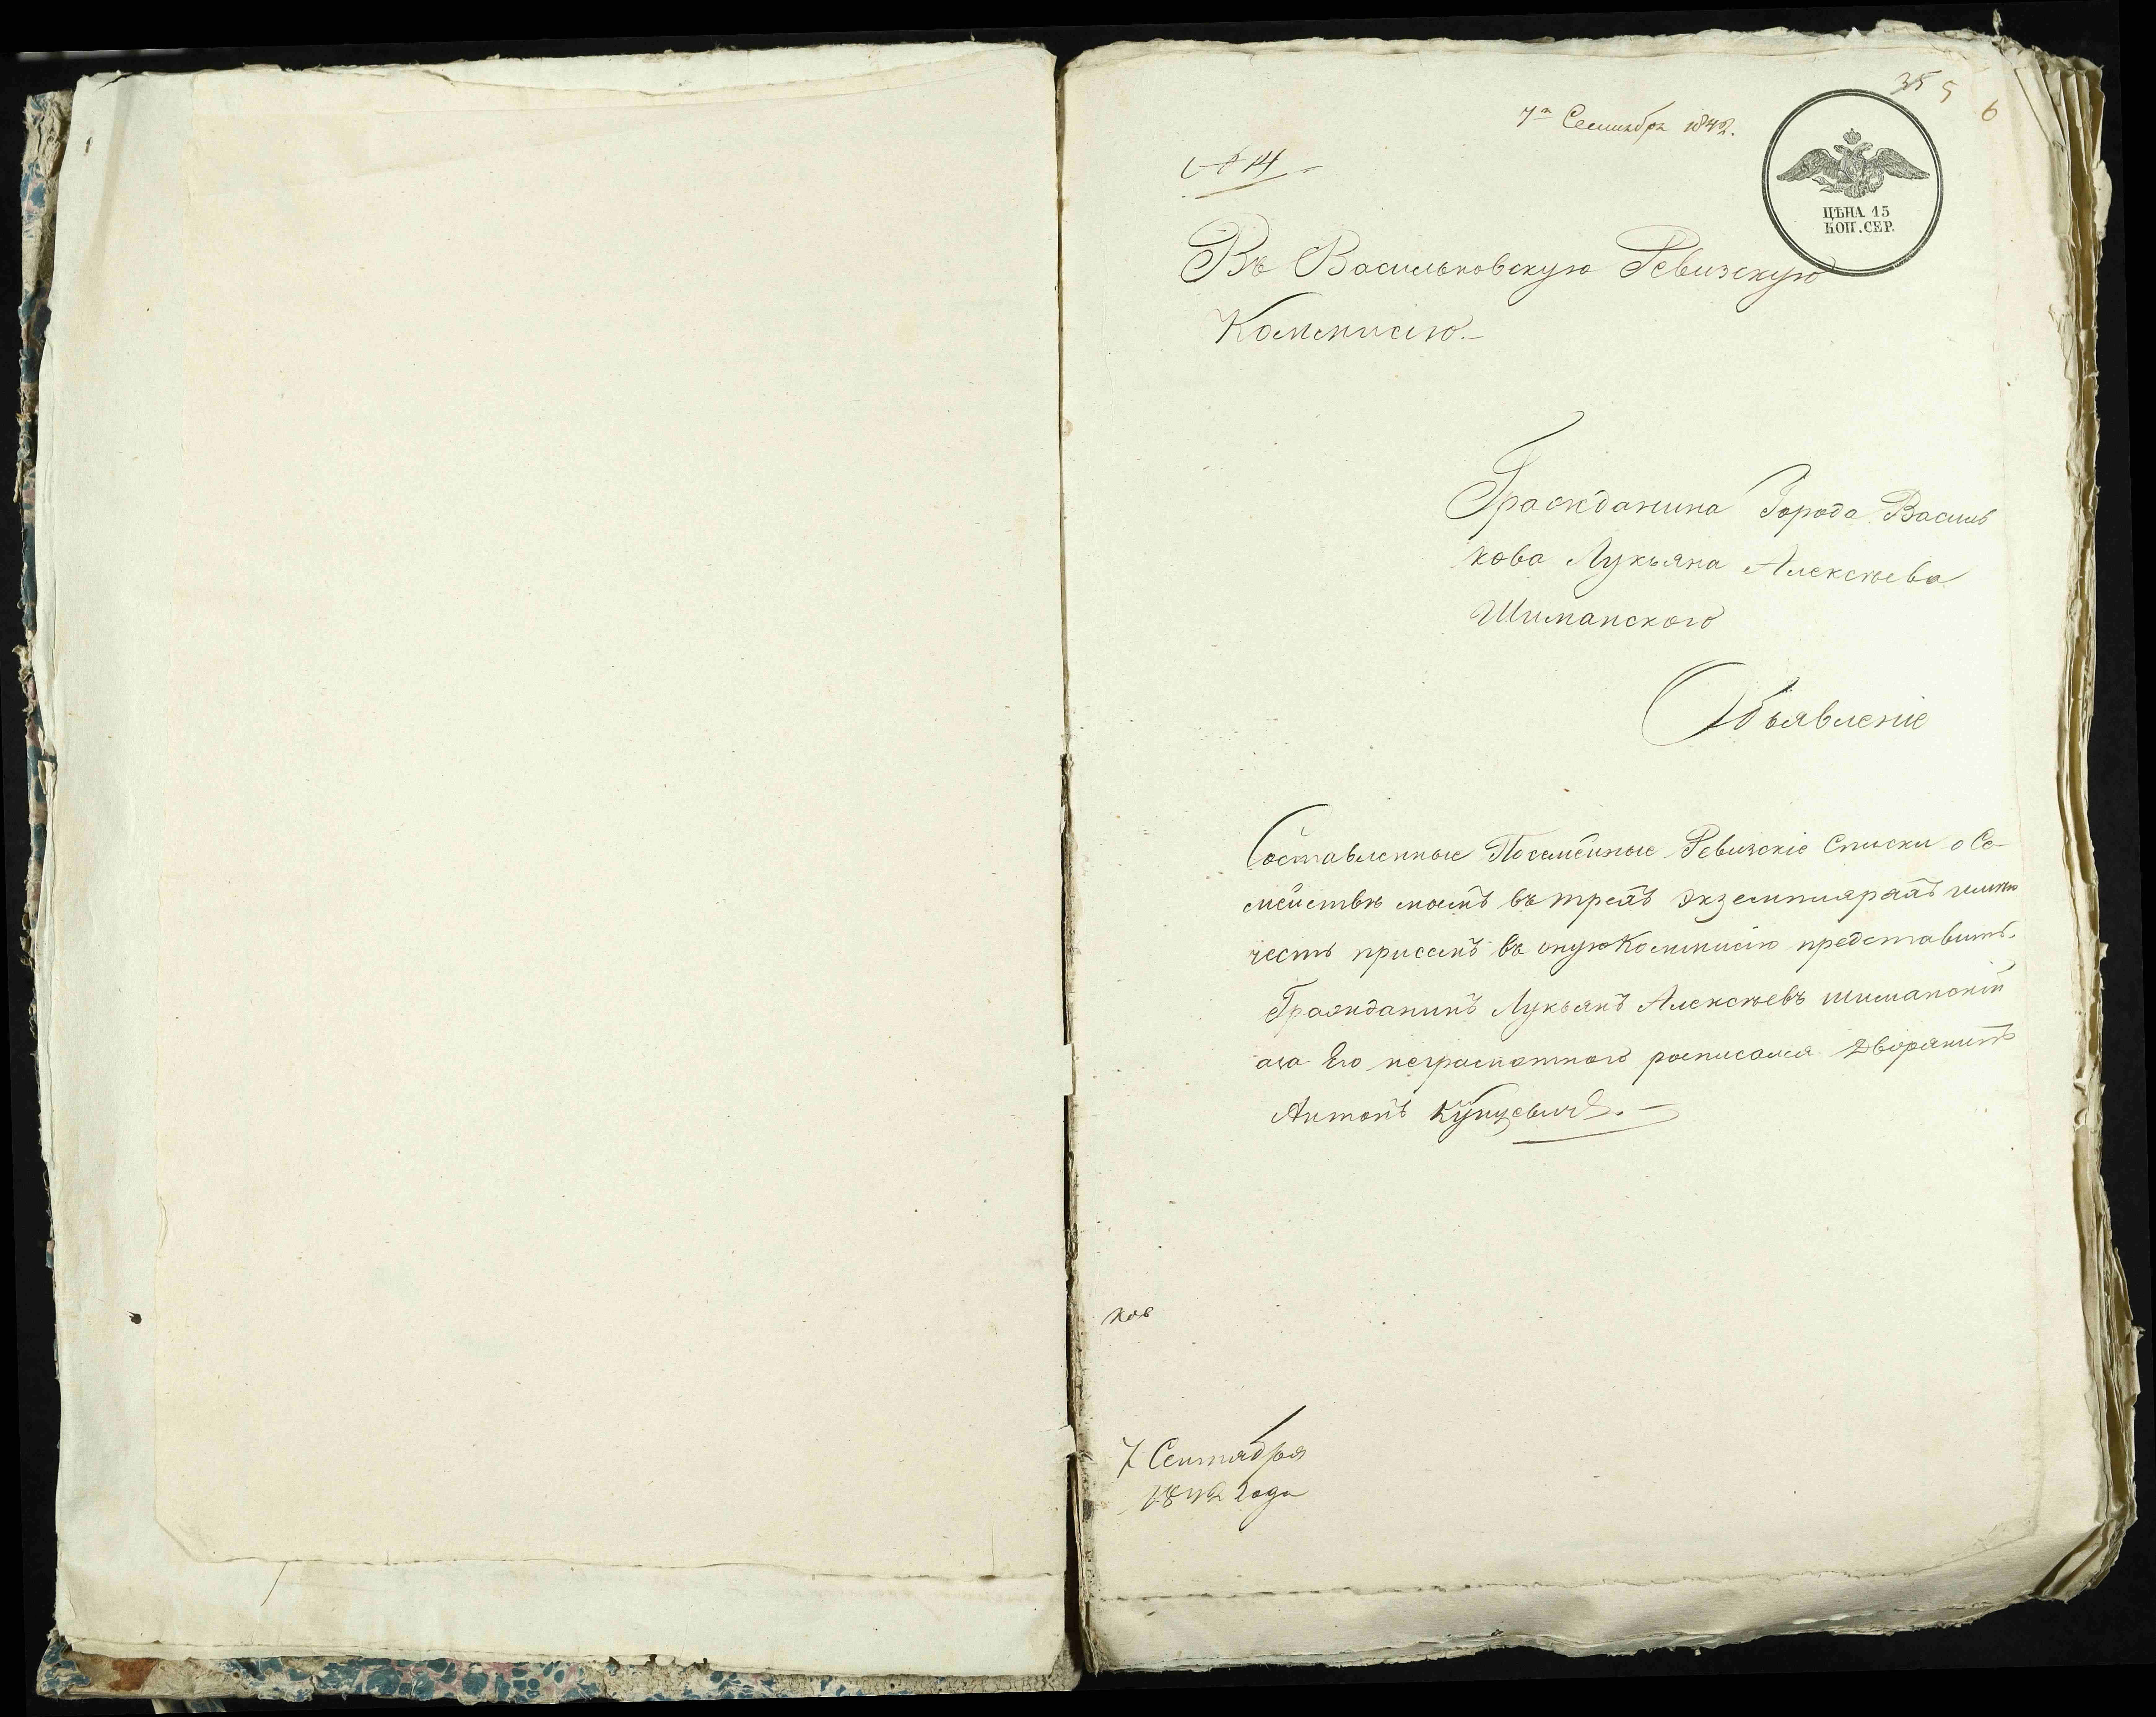 35 5
6
7го Сентября 1842.
№ 14
ЦѢНА 15
КОП. СЕР.
Въ Васильковскую Ревизскую
Коммисію.-
Гражданина Города Василь
кова Лукьяна Алексѣева
Шиманского
Объявленіе
Составленные Посемейные Ревизскіе Списки о Се-
мействѣ моемъ въ трехъ экземплярахъ имѣю
честь присемъ въ оную Коммисію представить.
Гражданинъ Лукьянъ Алексѣевъ шиманскій
аза Его неграмотного росписался Дворянинъ
Антонъ Кунцевичъ.-
ков
7 Сентября
1842 года